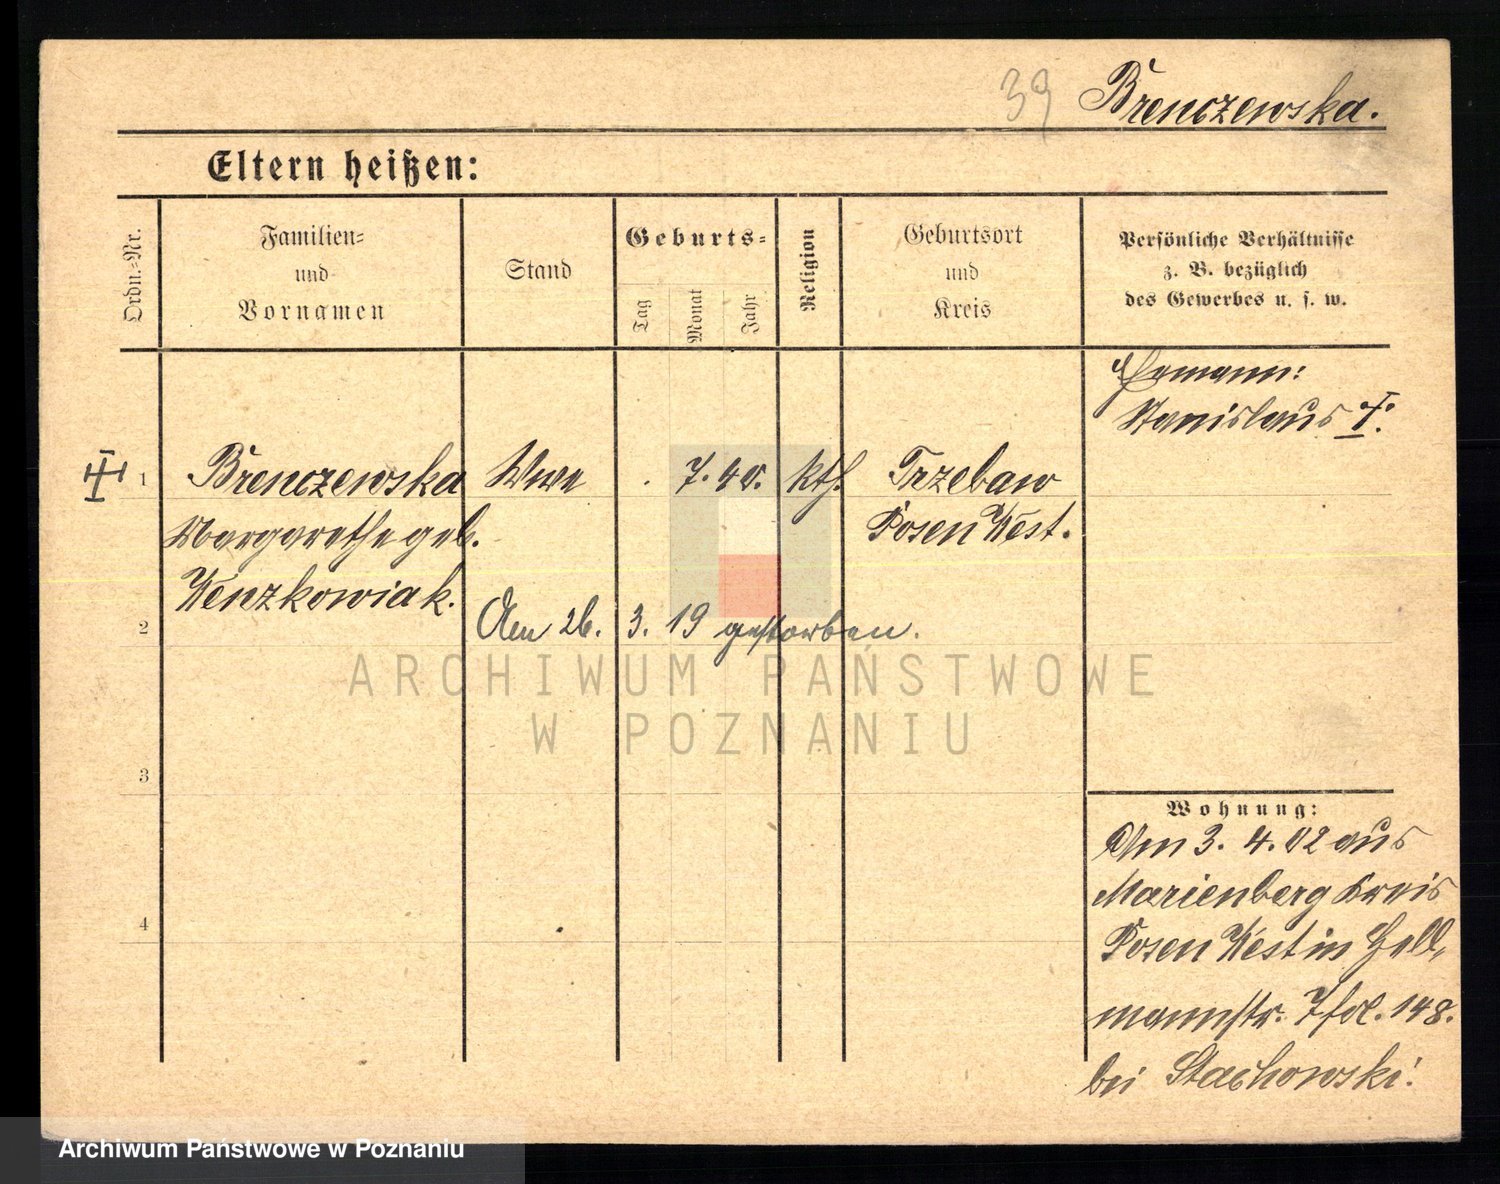 39 Brenczewska.
Eltern heißen:
Ordn.-Nr.
Familien-
und
Vornamen
Stand
Geburts-
Tag
Monat
Jahr
Religion
Geburtsort
und
Kreis
Persönliche Verhältnisse
z. B. bezüglich
des Gewerbes u. s. w.
Ehemann:
Stanislaus †.
1 Brenczewska Wwe . 7. 40. kth. Trzebaw
Margarethe geb. Posen West.
Wenzkowiak.
2 Am 26. 3. 19 gestorben.
ARCHIWUM PAŃSTWOWE
W POZNANIU
3
Wohnung:
Am 3. 4. 02 aus
Marienberg Kreis
4
Posen West in
mannstr. 7 fol. 148.
bei Stachowski.
Archiwum Państwowe w Poznaniu